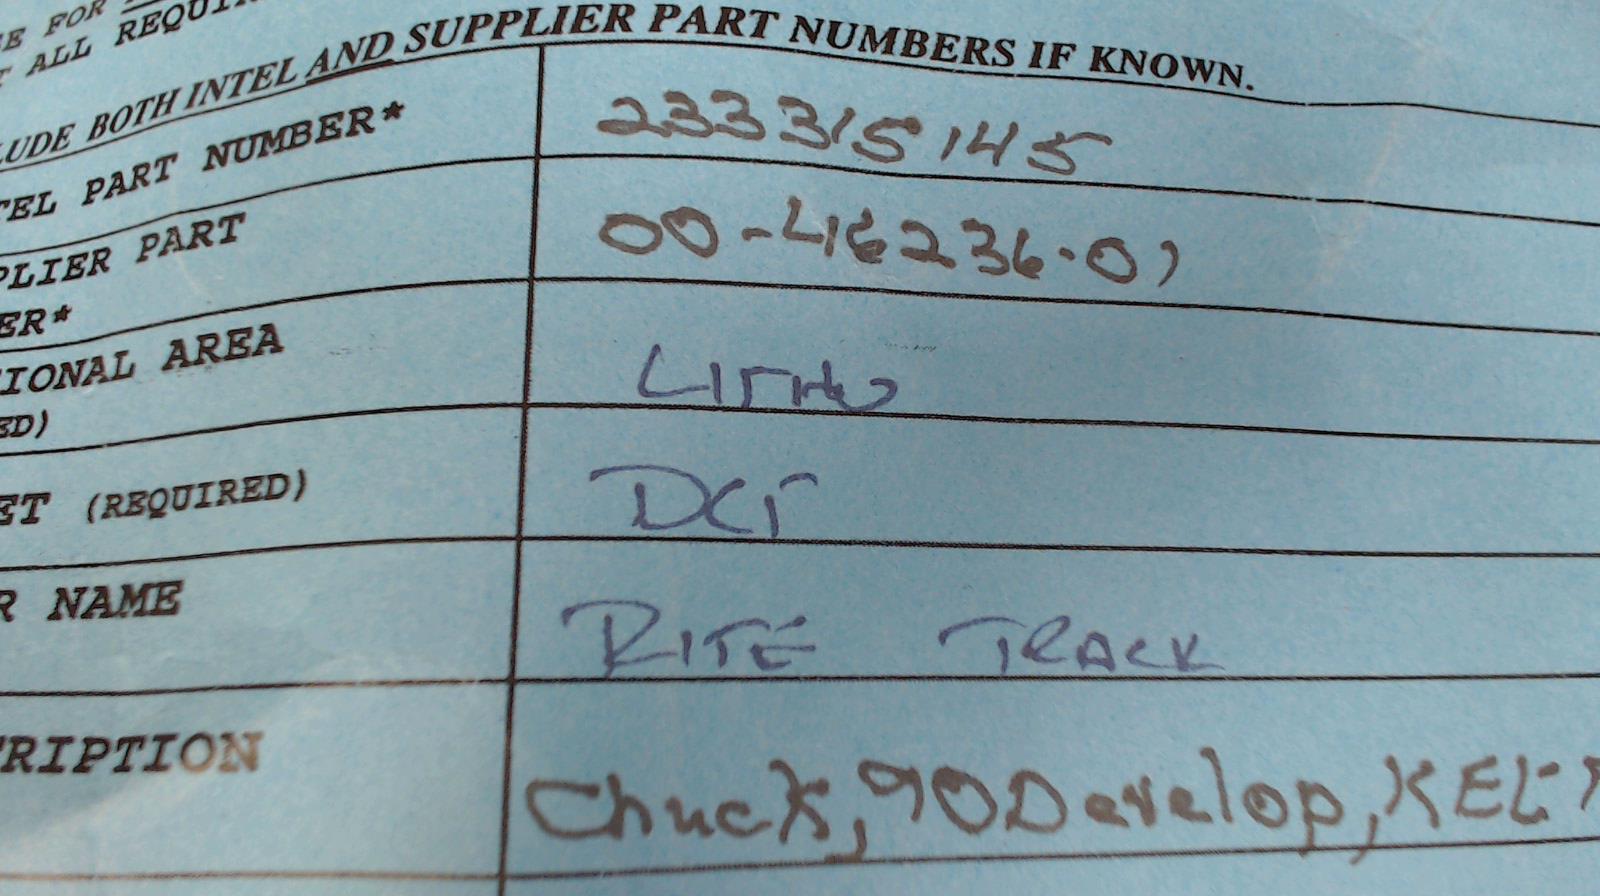 SE FOR
T ALL REQUI
LUDE BOTH INTEL AND SUPPLIER PART NUMBERS IF KNOWN.
TEL PART NUMBER*
233315145
PLIER PART
ER*
00-416236-01
IONAL AREA
ED)
LITHO
ET (REQUIRED)
DCT
R NAME
RITE TRACK
RIPTION
Chuck, 90 Develop, KEL-